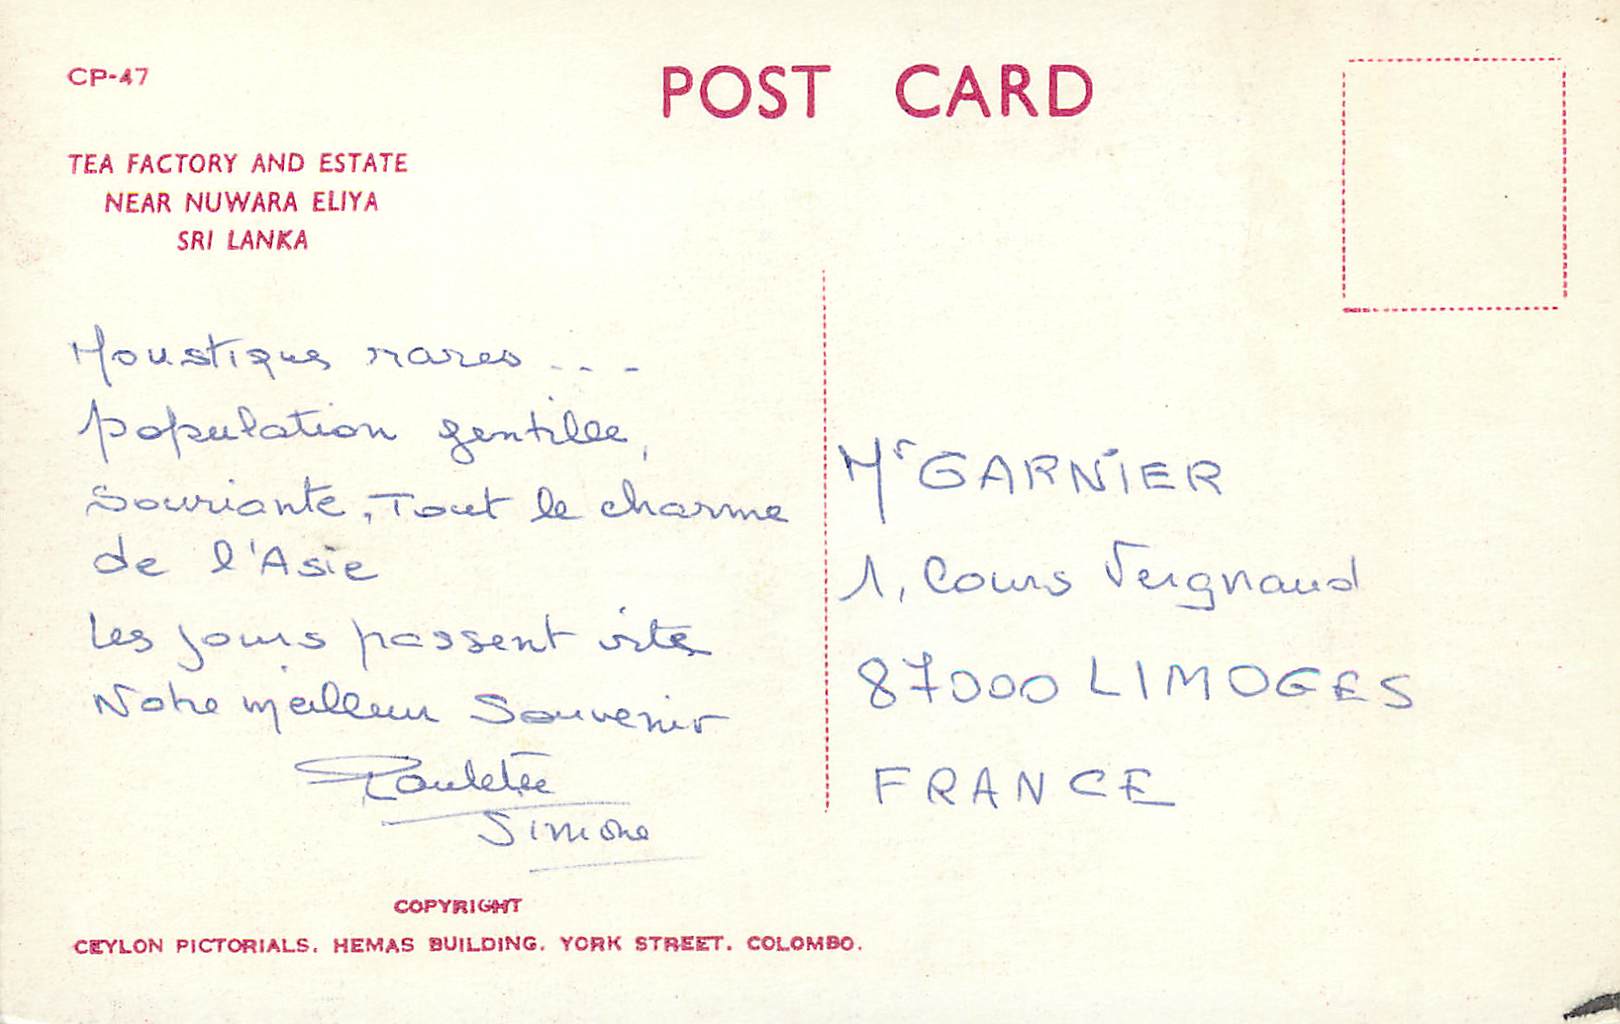 CP-47
POST CARD
TEA FACTORY AND ESTATE
NEAR NUWARA ELIYA
SRI LANKA
Moustiques rares ...
population gentille,
Souriante. Tout le charme
de l'Asie
Les jours passent vite
Notre meilleur Souvenir
Paulette
Simone
Mr GARNIER
1, Cours Vergnaud
87000 LIMOGES
FRANCE
COPYRIGHT
CEYLON PICTORIALS. HEMAS BUILDING. YORK STREET. COLOMBO.